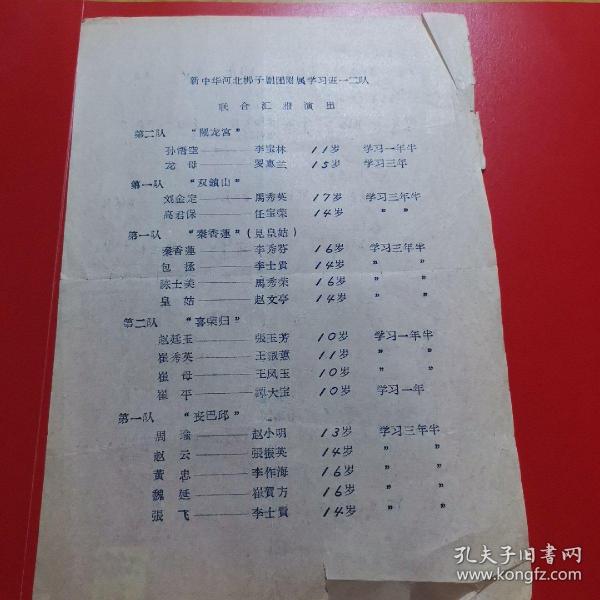 新中华河北梆子剧团附属学习班一二队
联合汇报演出
第二队 "闹龙宫"
孙悟空——李宝林 11岁 学习一年半
龙母——罗惠兰 15岁 学习三年
第一队 "双鎖山"
刘金定——馬秀英 17岁 学习三年半
高君保——任宝荣 14岁 " "
第一队 "秦香蓮"(見皇姑)
秦香蓮——李秀芬 16岁 学习三年半
包拯——李士貴 14岁 " "
陈士美——馬秀荣 16岁 " "
皇姑——赵文亭 14岁 " "
第二队 "喜荣归"
赵廷玉——張玉芳 10岁 学习一年半
崔秀英——王淑蕙 11岁 " "
崔母——王凤玉 10岁 " "
崔平——譚大宝 10岁 学习一年
第一队 "丧巴邱"
周瑜——赵小明 13岁 学习三年半
赵云——張振英 14岁 " "
黄忠——李作海 16岁 " "
魏延——崔賀方 16岁 " "
張飞——李士貴 14岁 " "
孔夫子旧书网
www.kongfz.com